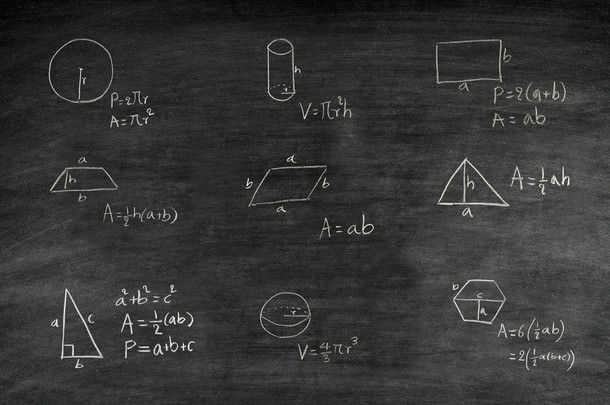 r
P=2πr
A=πr²
h
r
V=πr²h
b
a
P=2(a+b)
A=ab
a
h
b
A=½h(a+b)
a
b
b
a
A=ab
h
a
A=½ah
a
c
b
a²+b²=c²
A=½(ab)
P=a+b+c
r
V=4/3πr³
b
c
a
A=6(½ab)
=2(½a(b+c))